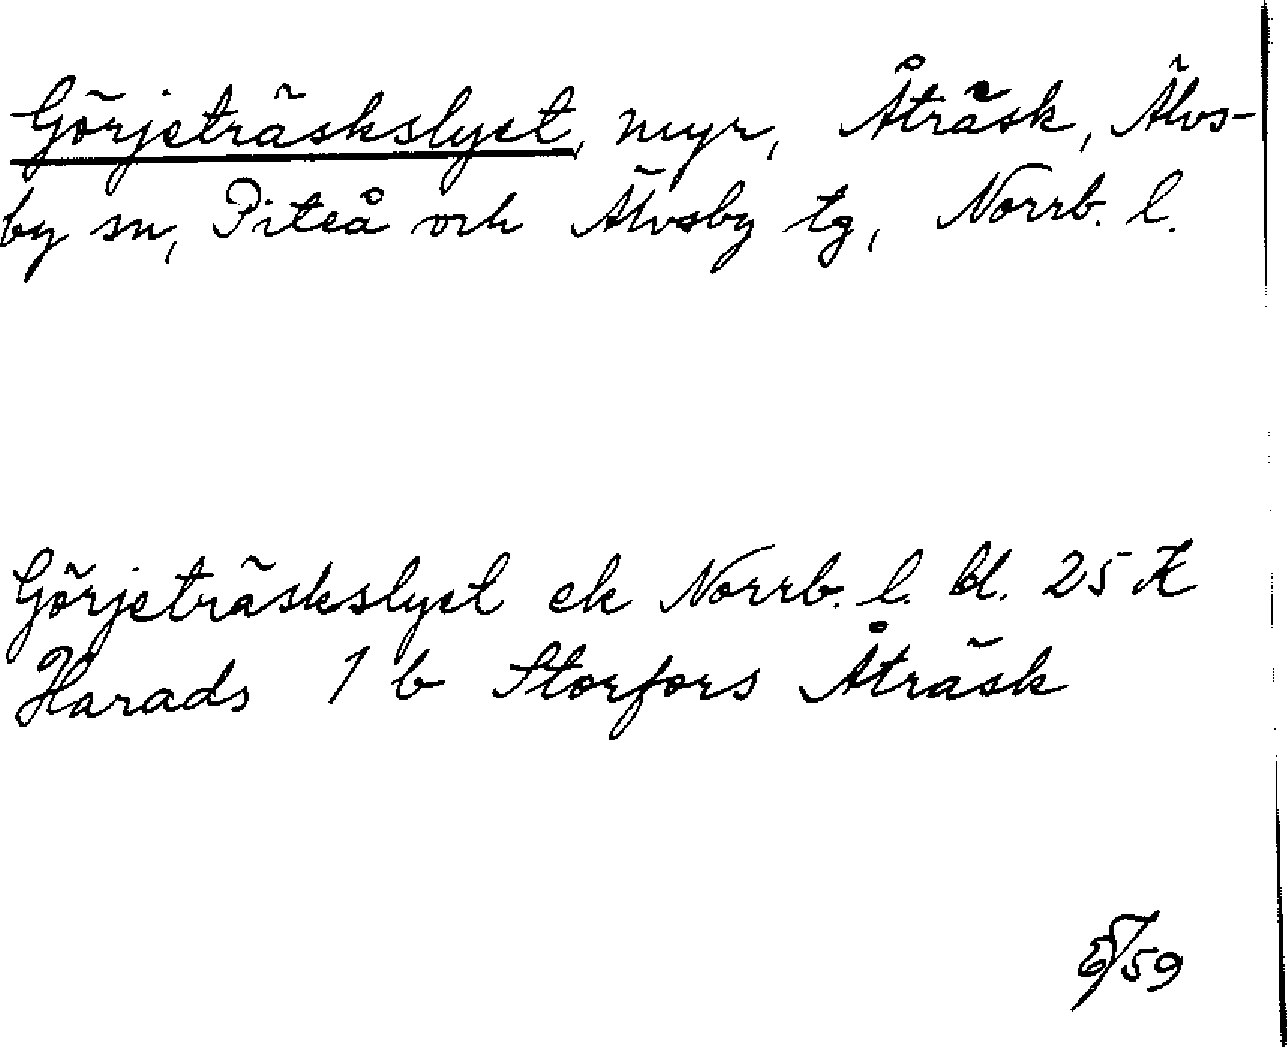 Görjeträskslyet, myr, Åträsk, Älvs-
by sn, Piteå och Älvsby tg, Norrb. l.
Görjeträskslyet ek Norrb. l. bl. 25 K
Harads 1 b Storfors Åträsk
/59